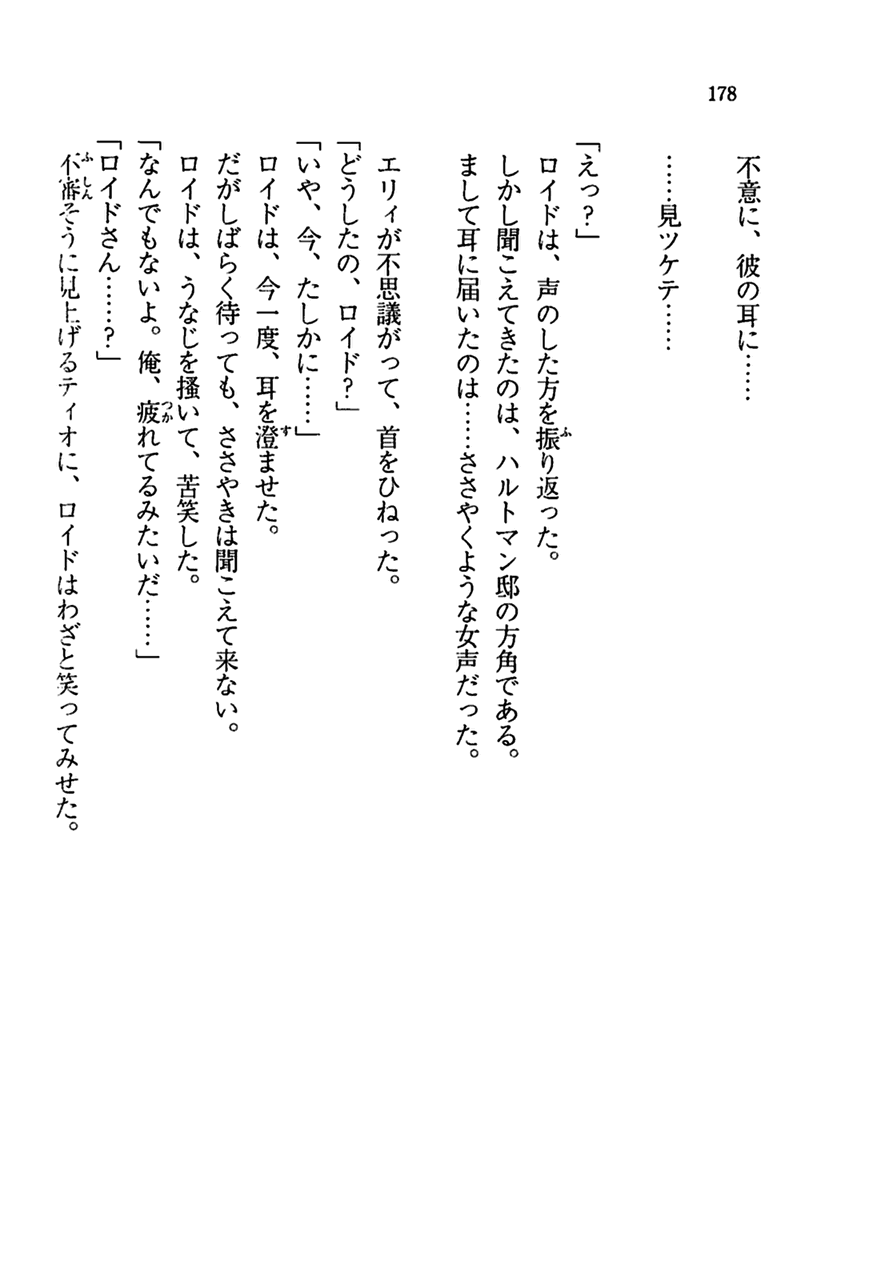 178
不意に、彼の耳に……
……見ツケテ……
「えっ？」
ロイドは、声のした方を振り返った。
しかし聞こえてきたのは、ハルトマン邸の方角である。
まして耳に届いたのは……ささやくような女声だった。
エリィが不思議がって、首をひねった。
「どうしたの、ロイド？」
「いや、今、たしかに……」
ロイドは、今一度、耳を澄ませた。
だがしばらく待っても、ささやきは聞こえて来ない。
ロイドは、うなじを掻いて、苦笑した。
「なんでもないよ。俺、疲れてるみたいだ……」
「ロイドさん……？」
不審そうに見上げるティオに、ロイドはわざと笑ってみせた。